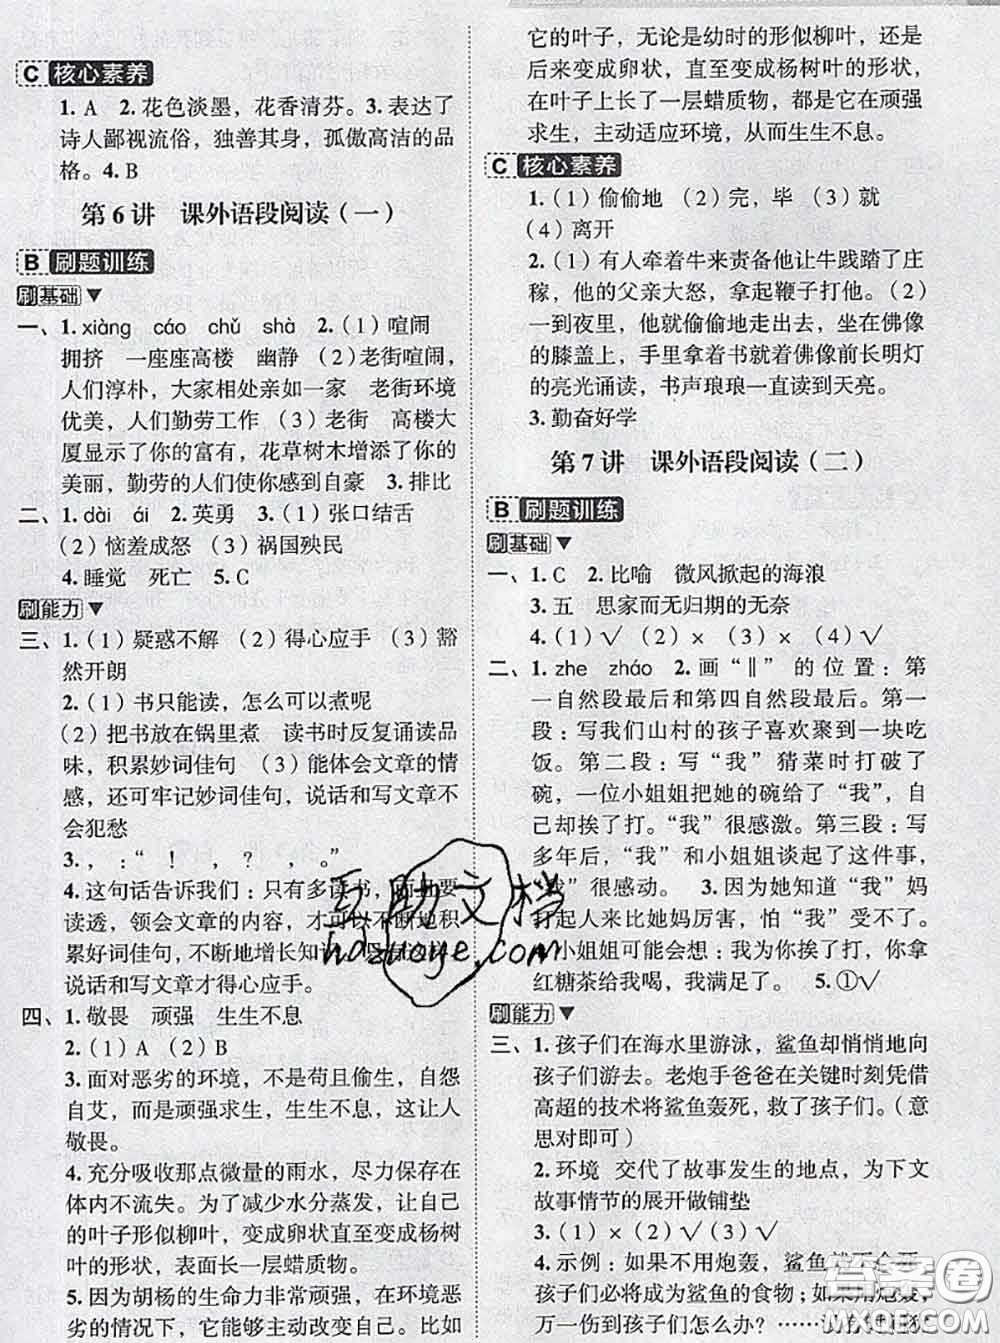 C 核心素养
1. A　2. 花色淡墨，花香清芬。3. 表达了
诗人鄙视流俗，独善其身，孤傲高洁的品
格。4. B
第 6 讲　课外语段阅读（一）
B 刷题训练
刷基础
一、1. xiàng　cáo　chǔ　shà　2.（1）喧闹
拥挤　一座座高楼　幽静（2）老街喧闹，
人们淳朴，大家相处亲如一家　老街环境
优美，人们勤劳工作（3）老街　高楼大
厦显示了你的富有，花草树木增添了你的
美丽，勤劳的人们使你感到自豪　3. 排比
二、1. dài　ái　2. 英勇　3.（1）张口结舌
（2）恼羞成怒（3）祸国殃民
4. 睡觉　死亡　5. C
刷能力
三、1.（1）疑惑不解（2）得心应手（3）豁
然开朗
2.（1）书只能读，怎么可以煮呢
（2）把书放在锅里煮　读书时反复诵读品
味，积累妙词佳句（3）能体会文章的情
感，还可牢记妙词佳句，说话和写文章不
会犯愁
3. ，：“！，？，。”
4. 这句话告诉我们：只有多读书，而且要
读透，领会文章的内容，才可以不断地积
累好词佳句，不断地增长知识，
说话和写文章才得心应手。
四、1. 敬畏　顽强　生生不息
2.（1）A（2）B
3. 面对恶劣的环境，不是苟且偷生，自怨
自艾，而是顽强求生，生生不息，这让人
敬畏。
4. 充分吸收那点微量的雨水，尽力保存在
体内不流失。为了减少水分蒸发，让自己
的叶子形似柳叶，变成卵状直至变成杨树
叶的形状，表面长一层蜡质物。
5. 因为胡杨的生命力非常顽强，在环境恶
劣的情况下，它能够主动改变自己。比如
它的叶子，无论是幼时的形似柳叶，还是
后来变成卵状，直至变成杨树叶的形状，
在叶子上长了一层蜡质物，都是它在顽强
求生，主动适应环境，从而生生不息。
C 核心素养
1.（1）偷偷地（2）完，毕（3）就
（4）离开
2.（1）有人牵着牛来责备他让牛践踏了庄
稼，他的父亲大怒，拿起鞭子打他。（2）
一到夜里，他就偷偷地走出去，坐在佛像
的膝盖上，手里拿着书就着佛像前长明灯
的亮光诵读，书声琅琅一直读到天亮。
3. 勤奋好学
第 7 讲　课外语段阅读（二）
B 刷题训练
刷基础
一、1. C　2. 比喻　微风掀起的海浪
3. 五　思家而无归期的无奈
4.（1）√（2）×（3）×（4）√
二、1. zhe　zháo　2. 画“‖”的位置：第
一自然段最后和第四自然段最后。第一
段：写我们山村的孩子喜欢聚到一块吃
饭。第二段：写“我”猜菜时打破了
碗，一位小姐姐把她的碗给了“我”，自
己却挨了打。“我”很感激。第三段：写
多年后，“我”和小姐姐谈起了这件事，
“我”很感动。　3. 因为她知道“我”妈
打起人来比她妈厉害，怕“我”受不了。
小姐姐可能会想：我为你挨了打，你却拿
红糖茶给我喝，我满足了。　5. ①√
刷能力
三、1. 孩子们在海水里游泳，鲨鱼却悄悄地向
孩子们游去。老炮手爸爸在关键时刻凭借
高超的技术将鲨鱼轰死，救了孩子们。（意
思对即可）
2. 环境　交代了故事发生的地点，为下文
故事情节的展开做铺垫
3.（1）×（2）√（3）√
4. 示例：如果不用炮轰，鲨鱼就不会死，
孩子们必将成为鲨鱼的食物；如果用炮轰，
万一伤到孩子们怎么办？……
互助文档
hdzuoye.com
答案圈
MXQE.COM